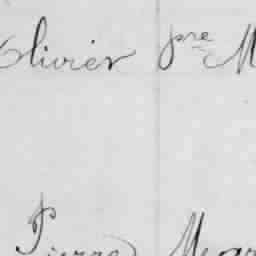 Olivier pre M
Pierre